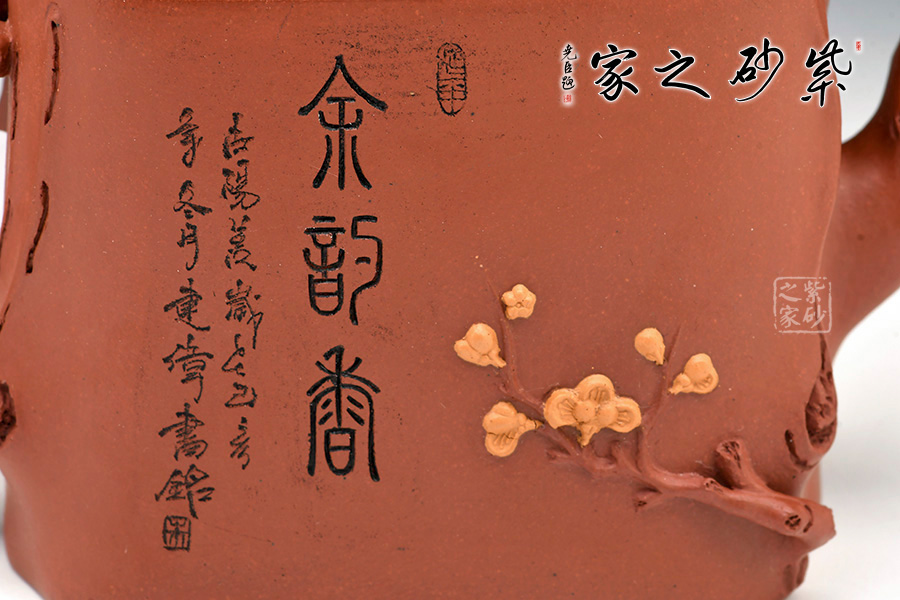 紫砂之家
堯臣題
余韵香
古陽羨歲
年冬月建偉書銘
紫砂之家